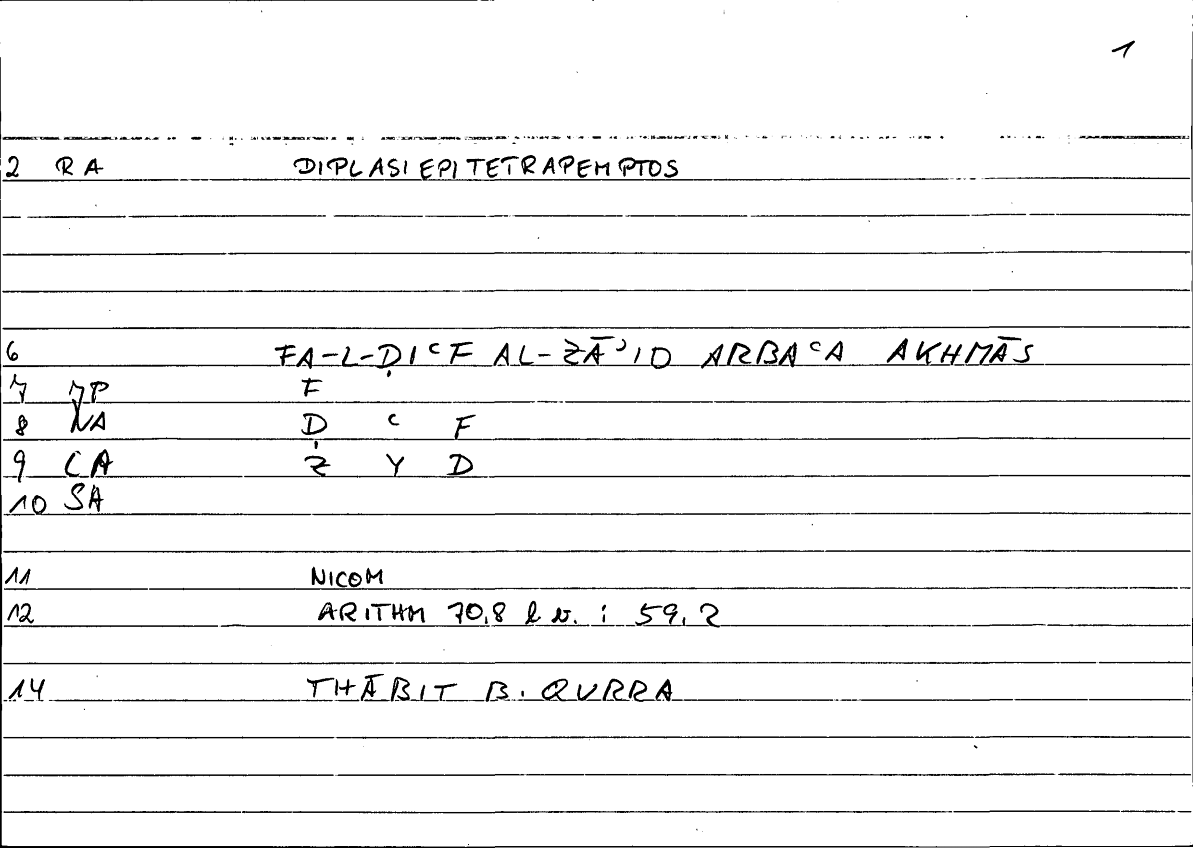 1
2 RA DIPLASIEPITETRAPEMPTOS
6 FA-L-ḌIʿF AL-ZĀʾID ARBAʿA AKHMĀS
7 7P F
8 NA Ḍ ʿ F
9 CA Z Y D
10 SA
11 NICOM
12 ARITHM 70,8 l v. : 59,2
14 THĀBIT B. QURRA